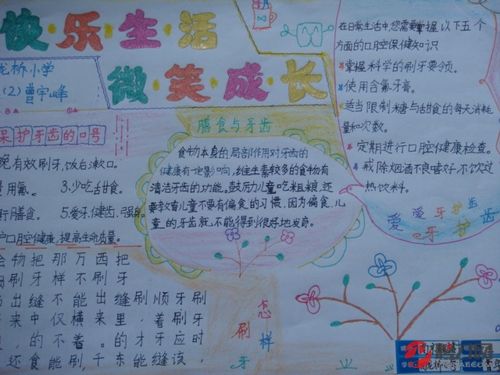 快乐生活
微笑成长
龙桥小学
(2)曾宇峰
保护牙齿的口号
有效刷牙,饭后漱口。
用氟。 3.少吃甜食。
膳食。 5.爱牙,健齿,强身。
口腔健康,提高生命质量。
膳食与牙齿
食物本身的局部作用对牙齿的
健康有一定影响,纤维生素较多的食物有
清洁牙齿的功能,鼓励儿童吃粗粮,还
要教育儿童不要有偏食的习惯,因为偏食儿
童的牙齿就不能得到很好地发育。
在日常生活中,您需要掌握以下五个
方面的口腔保健知识
掌握科学的刷牙要领。
使用含氟牙膏。
适当限制糖与甜食的每天消耗
量和次数。
定期进行口腔健康检查。
戒除烟酒不良嗜好不饮过
热饮料。
爱爱牙护齿
牙护齿
怎样
刷牙
物把那万西把
刷牙样不刷牙
出缝不能出缝刷顺牙刷
来中仅横来里,着刷牙
,的不着。的才牙应时
还食能刷千东能缝该,